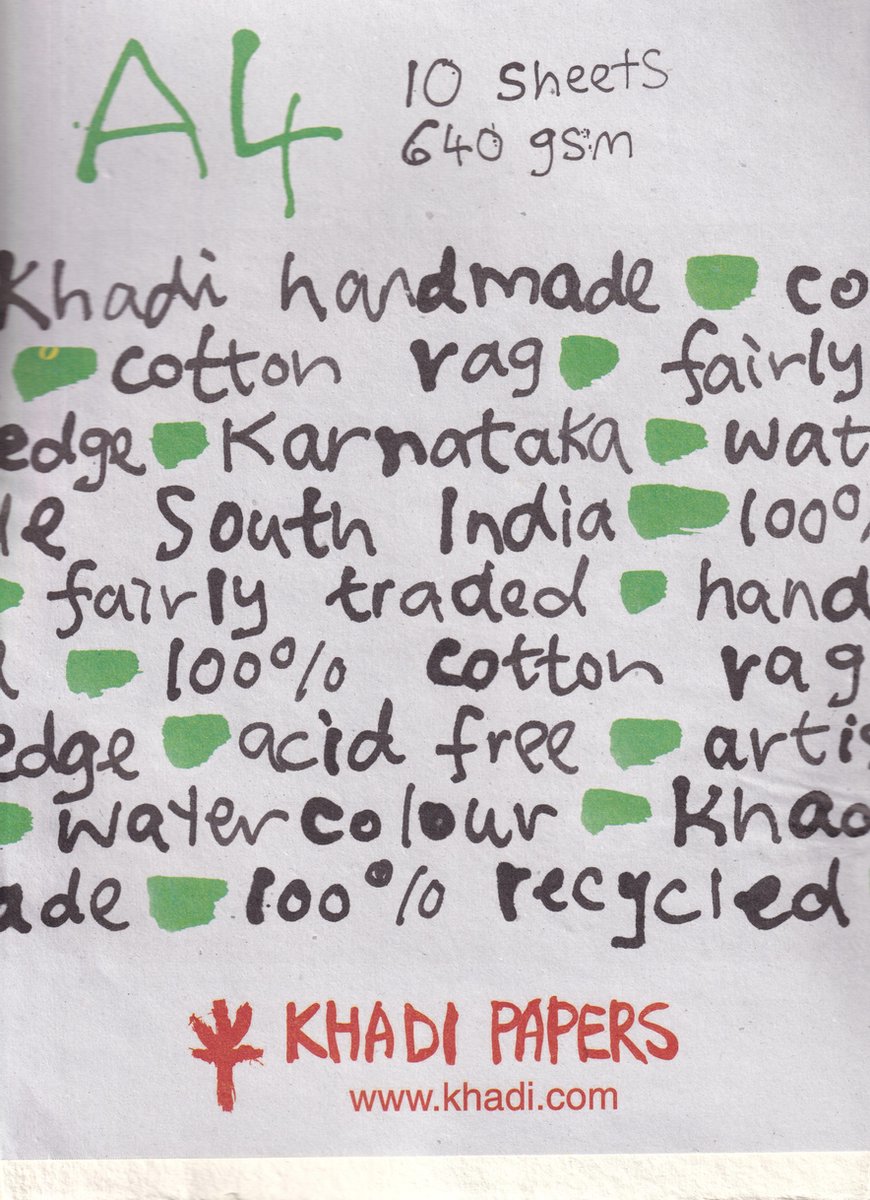 A4 10 sheets
640 gsm
Khadi handmade co
cotton rag fairly
edge Karnataka wat
le South India 100%
fairly traded hand
100% cotton rag
edge acid free artis
watercolour Khad
ade 100% recycled
KHADI PAPERS
www.khadi.com